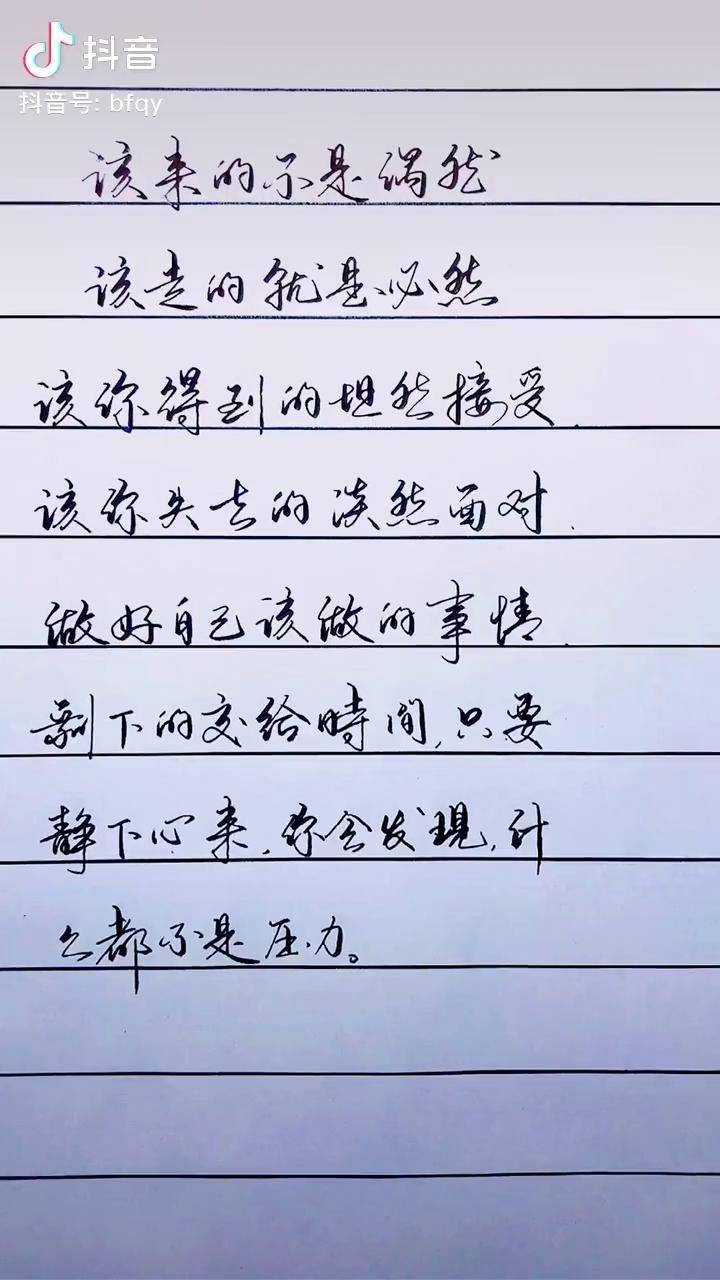 抖音
抖音号: bfqy
该来的不是偶然
该走的就是必然
该你得到的坦然接受.
该你失去的淡然面对.
做好自己该做的事情.
剩下的交给時间,只要
静下心来,你会发現,什
么都不是压力。